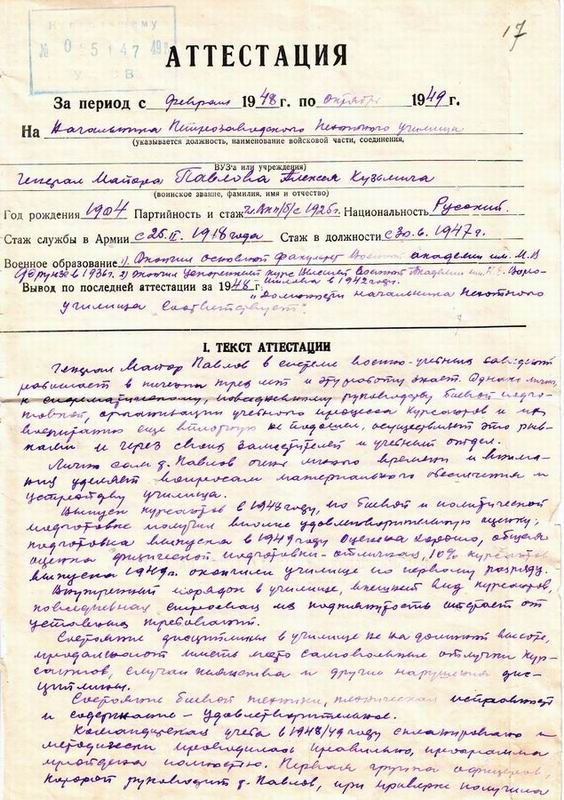 17
№ 065147 49г.
АТТЕСТАЦИЯ
За период с февраля 1948 г. по октябрь 1949 г.
На Начальника Петрозаводского Пехотного училища
(указывается должность, наименование войсковой части, соединения,
ВУЗ'а или учреждения)
Генерал Майора Павлова Алексея Кузьмича
(воинское звание, фамилия, имя и отчество)
Год рождения 1904 Партийность и стаж чл. ВКП(б) с 1925г. Национальность Русский.
Стаж службы в Армии с 25.II.1918 года Стаж в должности с 30.6.1947г.
Военное образование 1) Окончил основной факультет Военной академии им. М.В
Фрунзе в 1936г. 2) Окончил ускоренный курс Высшей Военной Академии им. К.Е. Воро-
шилова в 1942 году.
Вывод по последней аттестации за 1948 г. "Должности начальника пехотного
училища соответствует".
I. ТЕКСТ АТТЕСТАЦИИ
Генерал Майор Павлов в системе военно-учебных заведений
работает в течении трех лет и эту работу знает. Однако лично,
к систематическому, повседневному руководству боевой подго-
товкой, организации учебного процесса курсантов и их
воспитанию еще вплотную не подошел, осуществляет это рыв-
ками и через своих заместителей и учебный отдел.
Лично сам т. Павлов очень много времени и внима-
ния уделяет вопросам материального обеспечения и
устройству училища.
Выпуск курсантов в 1948 году, по боевой и политической
подготовке получил вполне удовлетворительную оценку;
подготовка выпуска в 1949 году оценена хорошо, общая
оценка физической подготовки - отличная, 10% курсантов
выпуска 1949г. окончили училище по первому разряду.
Внутренний порядок в училище, внешний вид курсантов,
повседневная строевая их подтянутость отстает от
уставных требований.
Состояние дисциплины в училище не на должной высоте,
продолжают иметь место самовольные отлучки кур-
сантов, случаи пьянства и другие нарушения дис-
циплины.
Состояние боевой техники, техническая исправность
и содержание - удовлетворительное.
Командирская учеба в 1948/49 году спланирована и
методически проводилась правильно, программа
пройдена полностью. Первая группа офицеров,
которой руководит т. Павлов, при проверке получила